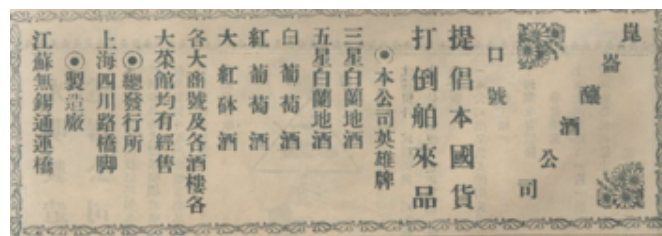 崑崙釀酒公司
口號
提倡本國貨
打倒舶來品
◉本公司英雄牌
三星白蘭地酒
五星白蘭地酒
白葡萄酒
紅葡萄酒
大紅砵酒
各大商號及各酒樓各
大菜館均有經售
◉總發行所
上海四川路橋脚
◉製造廠
江蘇無錫通運橋